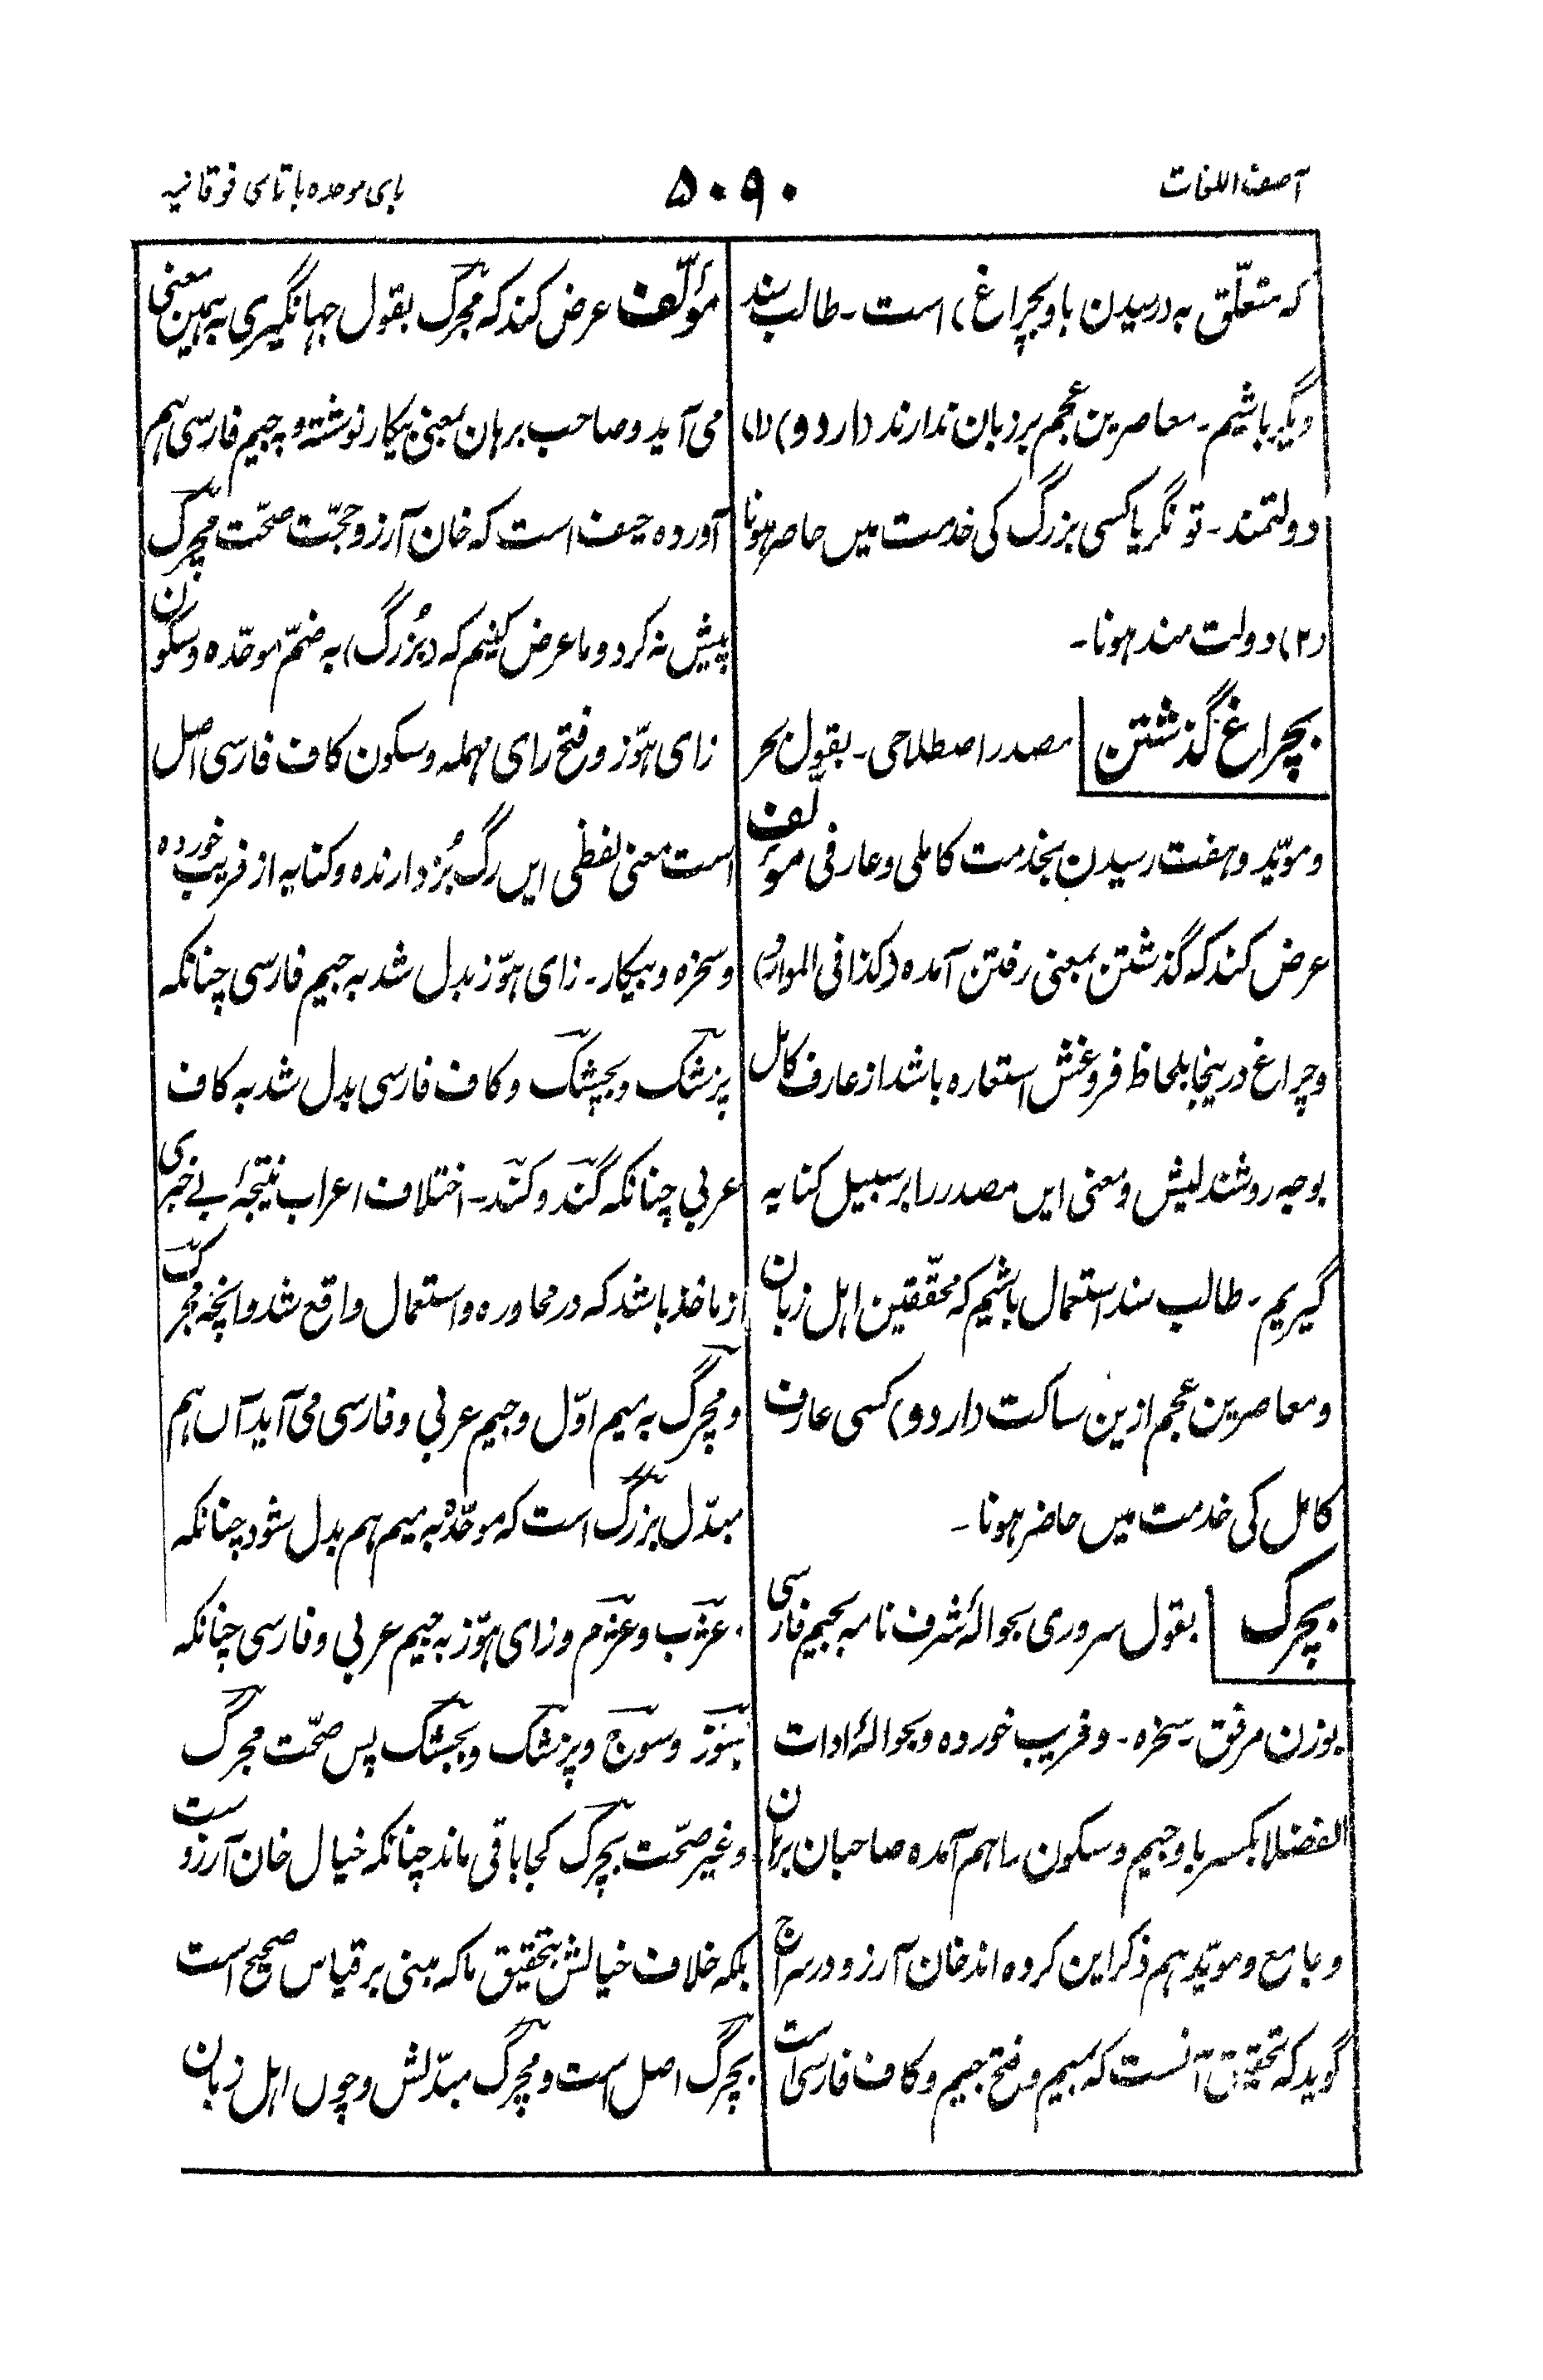 آصف اللغات
۵۰۹۰
بای موحده با تای فوقانیه
که متعلّق به (رسیدن با وبچراغ) است ۔ طالب سند
دیگر باشیم ۔ معاصرین عجم بر زبان ندارند (اردو) (۱)
دولتمند ۔ تونگر یا کسی بزرگ کی خدمت میں حاضر ہونا
(۲) دولت مند ہونا ۔
بچراغ گذشتن مصدر اصطلاحی ۔ بقول بحر
و مویّد و هفت رسیدن بخدمت کاملی و عارفی مؤلّف
عرض کند که گذشتن بمعنی رفتن آمده (کذا فی الموارد)
و چراغ درینجا بلحاظ فروغش استعاره باشد از عارف کامل
بوجه روشندلیش و معنی ایں مصدر را بر سبیل کنایه
گیریم ۔ طالب سند استعمال باشیم که محقّقین اہل زبان
و معاصرین عجم ازین ساکت (اردو) کسی عارف
کامل کی خدمت میں حاضر ہونا ۔
بچرک بقول سروری بحوالۂ شرف نامه بجیم فارسی
بوزن مرفق ۔ سخره ۔ و فریب خورده و بحوالۂ ادات
الفضلا بکسر با و جیم و سکون را هم آمده صاحبان برهان
و جامع و مویّد هم ذکر این کرده اند خان آرزو در سراج
گوید که تحقیق آنست که بمیم و فتح جیم و کاف فارسی است
مؤلّف عرض کند که مجرگ بقول جهانگیری به ہمین معنی
می آید و صاحب برہان بمعنی بیکار نوشته و بجیم فارسی ہم
آورده حیف است که خان آرزو حجّت صحّت مچرگ
پیش نه کرد و ما عرض کنیم که (بُزرگ) به ضمّ موحّده و سکون
زای ہوّز و فتح رای مہمله و سکون کاف فارسی اصل
است معنی لفظی ایں رگ بُز دارنده و کنایه از فریب خورده
و سخره و بیکار ۔ زای ہوّز بدل شد به جیم فارسی چنانکه
پزشک و بچشک و کاف فارسی بدل شد به کاف
عربی چنانکه گند و کند ۔ اختلاف اعراب نتیجۂ بے خبری
از ماخذ باشد که در محاوره و استعمال واقع شد و انچه مجرگ
و مچرگ به میم اوّل و جیم عربی و فارسی می آید آں ہم
مبدّل بزرگ است که موحّده به میم ہم بدل شود چنانکه
غژب و غژم و زای ہوّز به جیم عربی و فارسی چنانکه
و سوج و پزشک و بجشک پس صحّت مجرگ
و غیر صحّت بچرک کجا باقی ماند چنانکه خیال خان آرزوست
بلکه خلاف خیالش بتحقیق ما که مبنی بر قیاس صحیح است
بچرگ اصل است و مچرگ مبدّلش و چوں اہل زبان